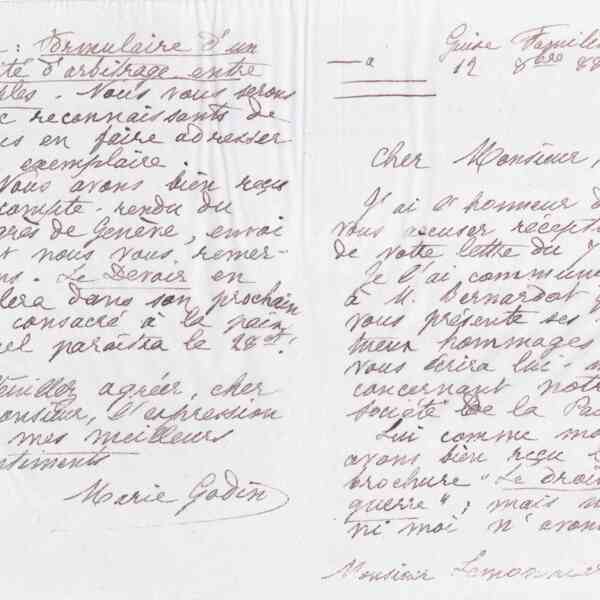 : Formulaire d'un
ité d'arbitrage entre
ples. Nous vous serons
c reconnaissants de
us en faire adresser
exemplaire.
Nous avons bien reçu
compte-rendu du
grès de Genève, envoi
t nous vous remer-
ns. Le Devoir en
lera dans son prochain
consacré à la paix,
el paraîtra le 28 ct!
Veuillez agréer, cher
onsieur, l'expression
mes meilleurs
ntiments
Marie Godin
a
Guise Familis
12 8bre 88
Cher Monsieur,
J'ai l'honneur d
vous accuser récepti
de votre lettre du 7
Je l'ai commun
à M. Bernardot q
vous présente ses
meux hommages
vous écrira lui-
concernant notr
Société de la Pai
Lui comme mo
avons bien reçu l
brochure "Le droi
guerre"; mais n
ni moi n'avon
Monsieur Lemonnier